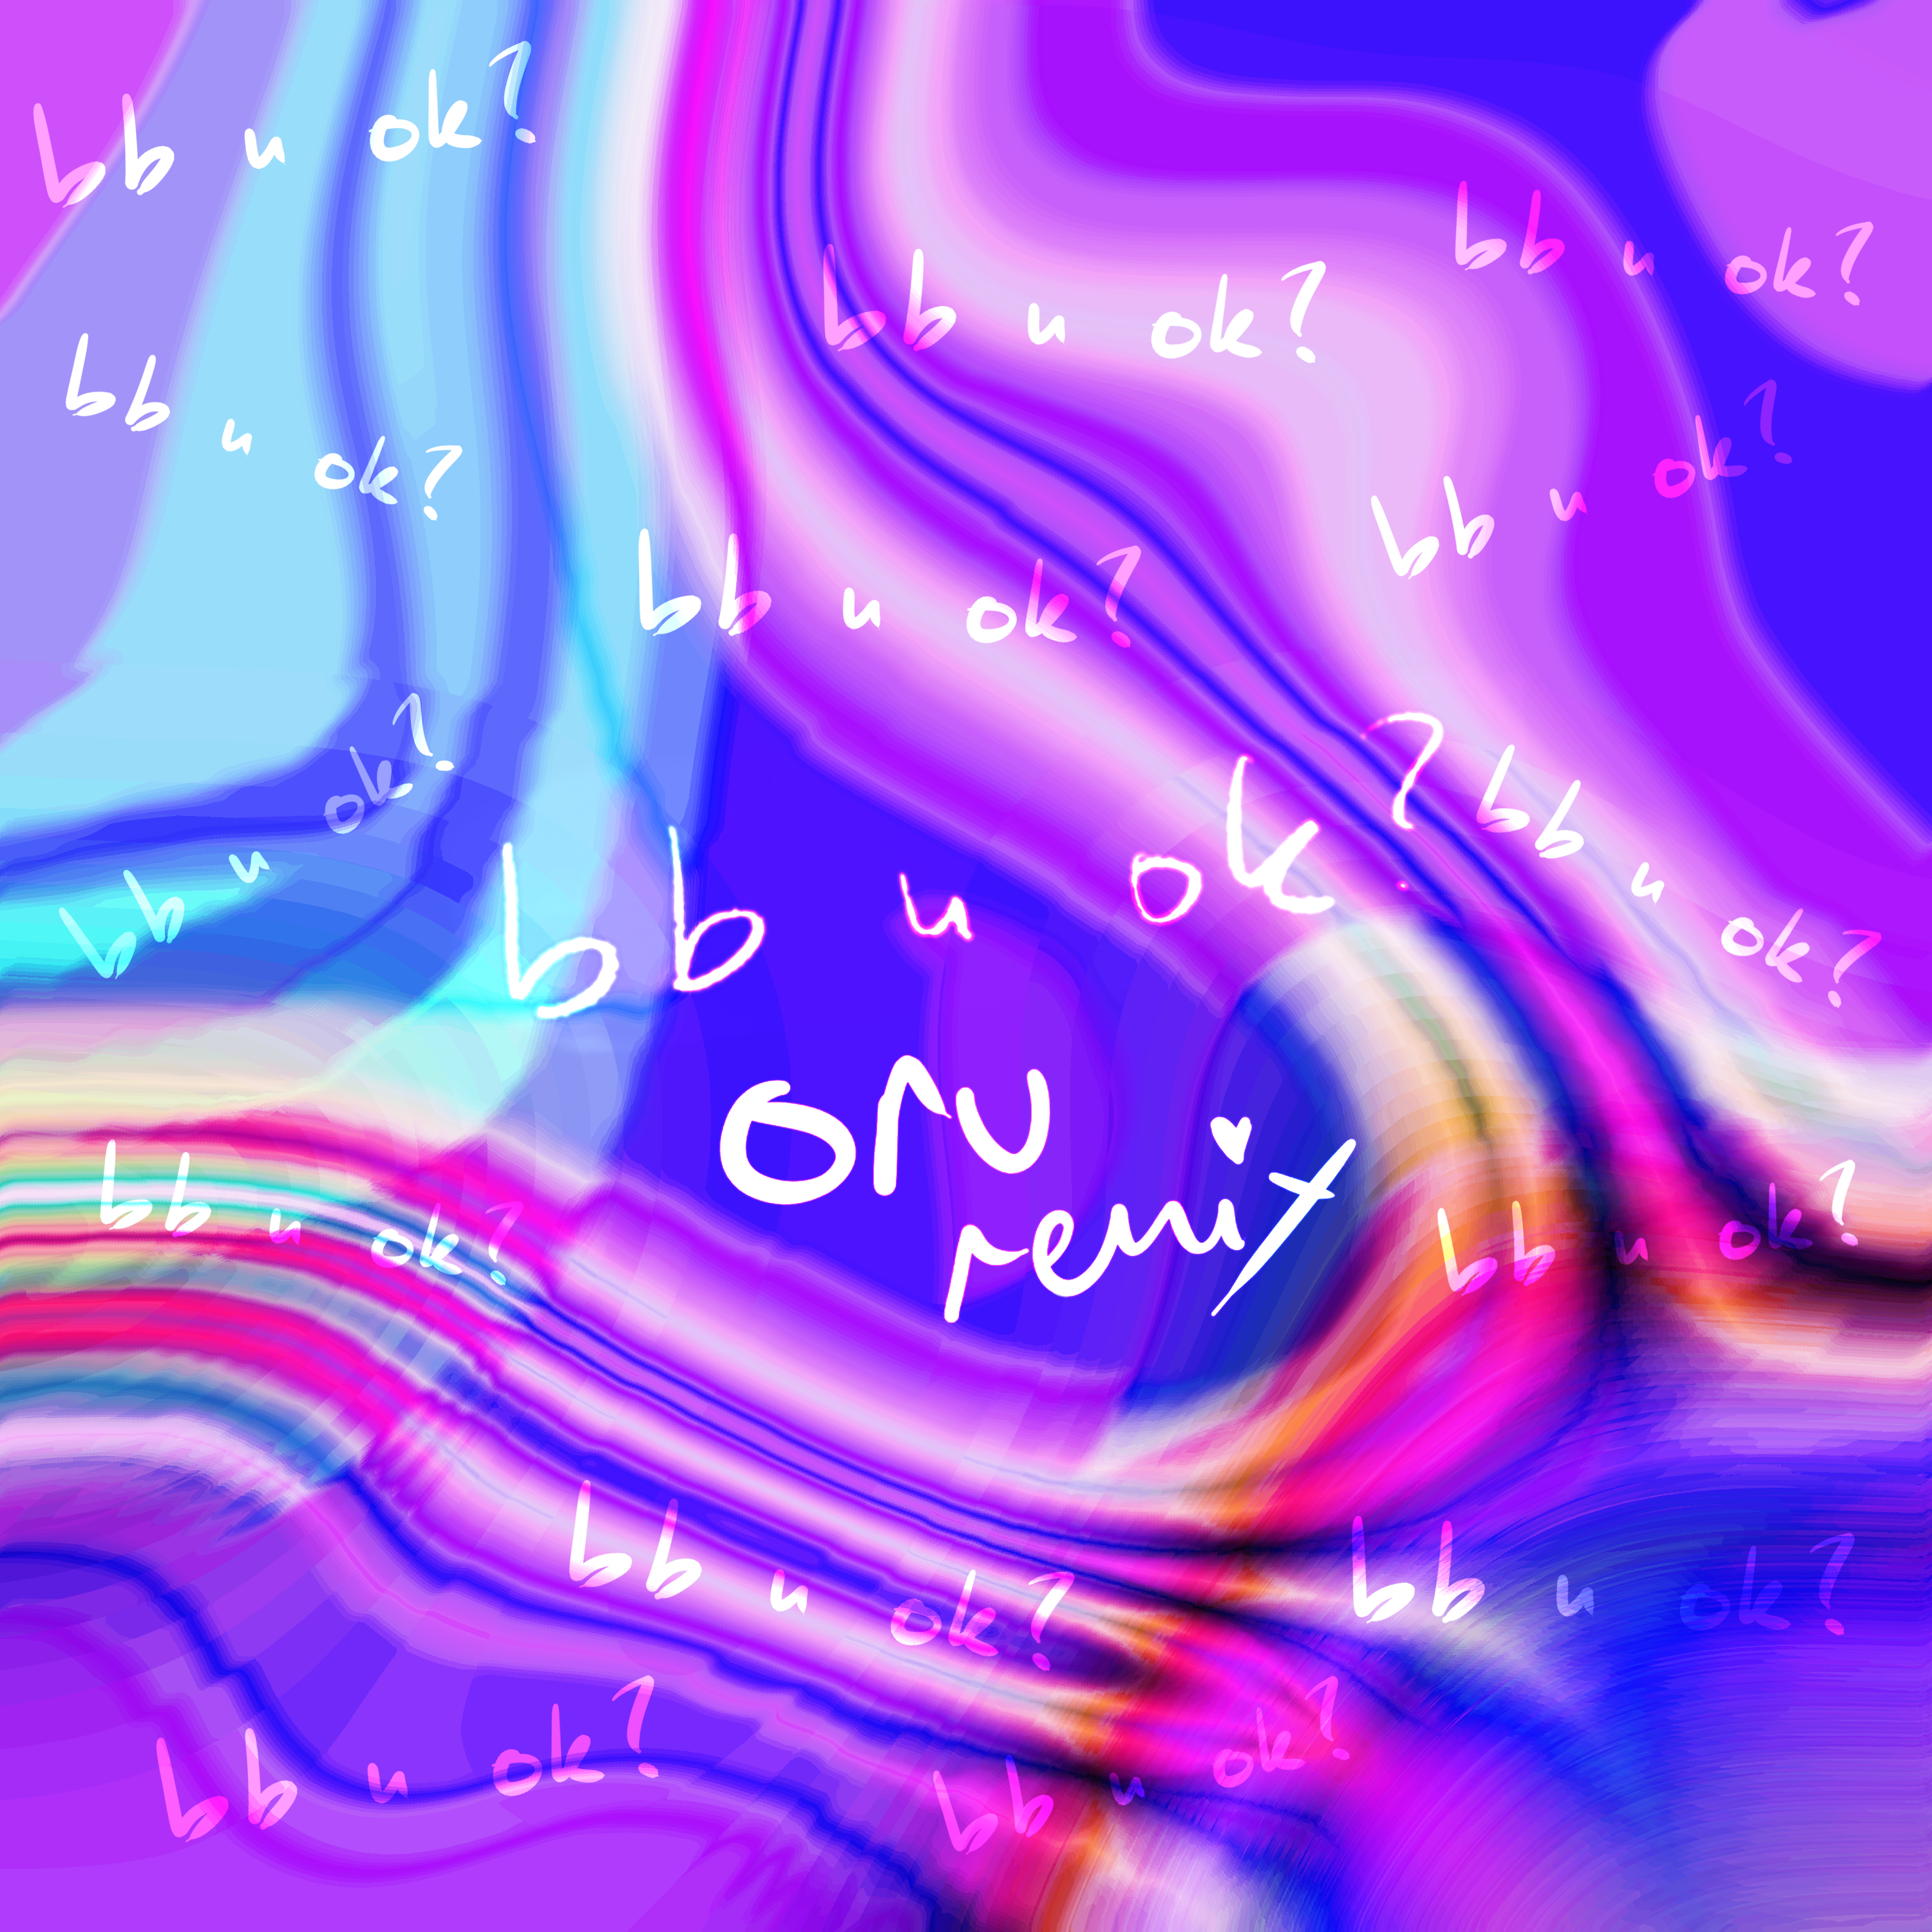 bb u ok?
bb u ok?
bb u ok?
bb u ok?
bb u ok?
bb u ok?
bb u ok?
bb u ok?
bb u ok?
oru
remix
bb u ok?
bb u ok?
bb u ok?
bb u ok?
bb u ok?
bb u ok?